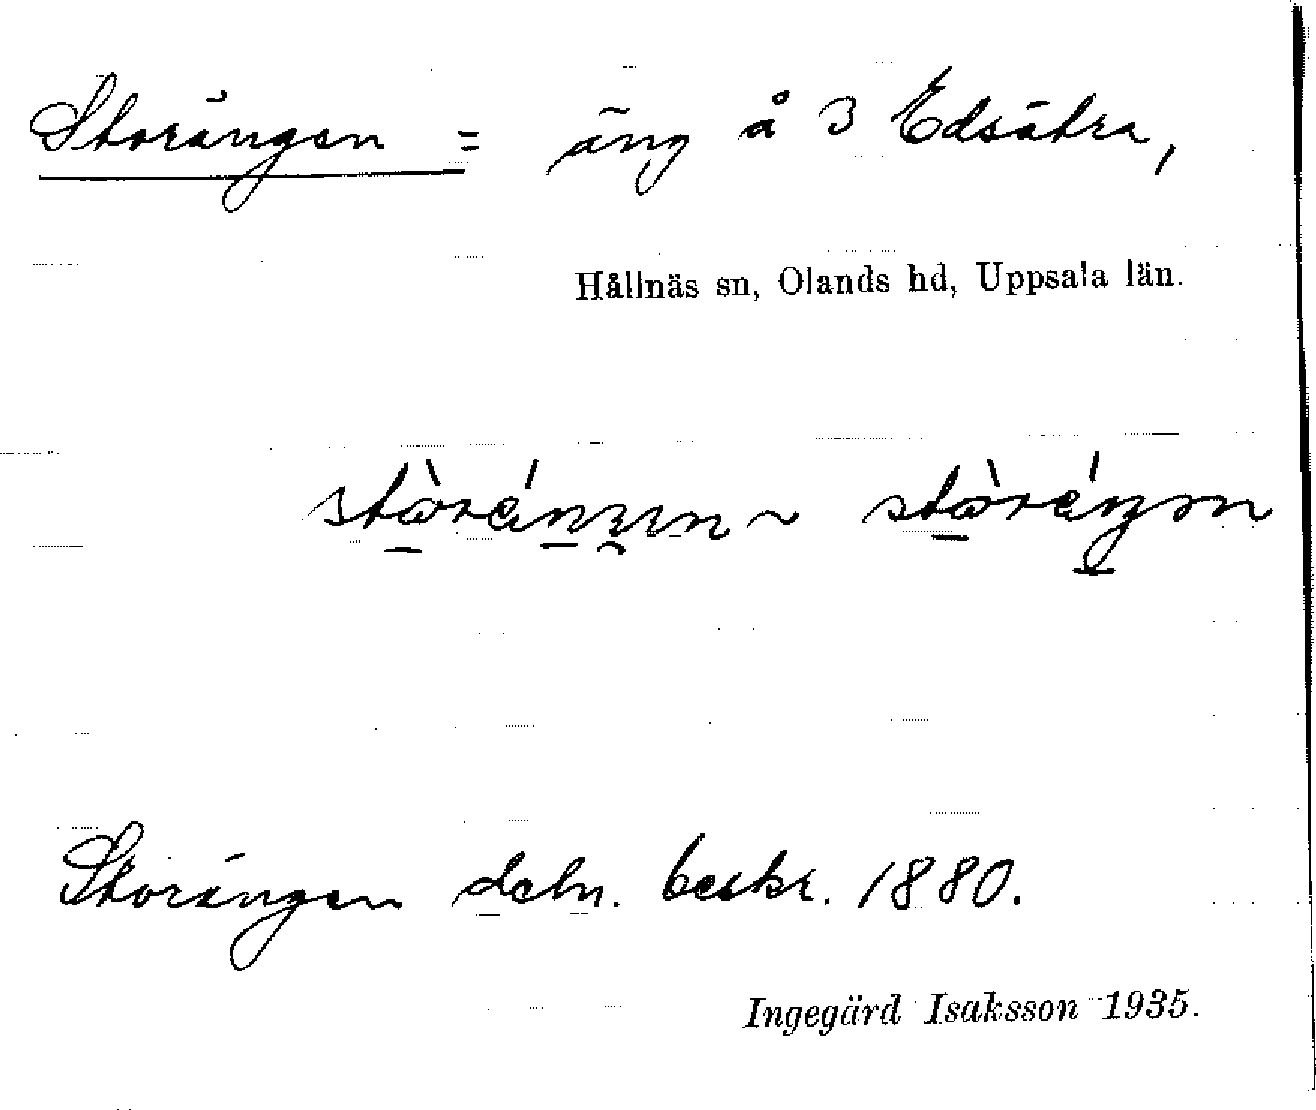 Storängen = äng å 3 Edsätra,
Hållnäs sn, Olands hd, Uppsala län.
Storängen deln. beskr. 1880.
Ingegärd Isaksson 1935.